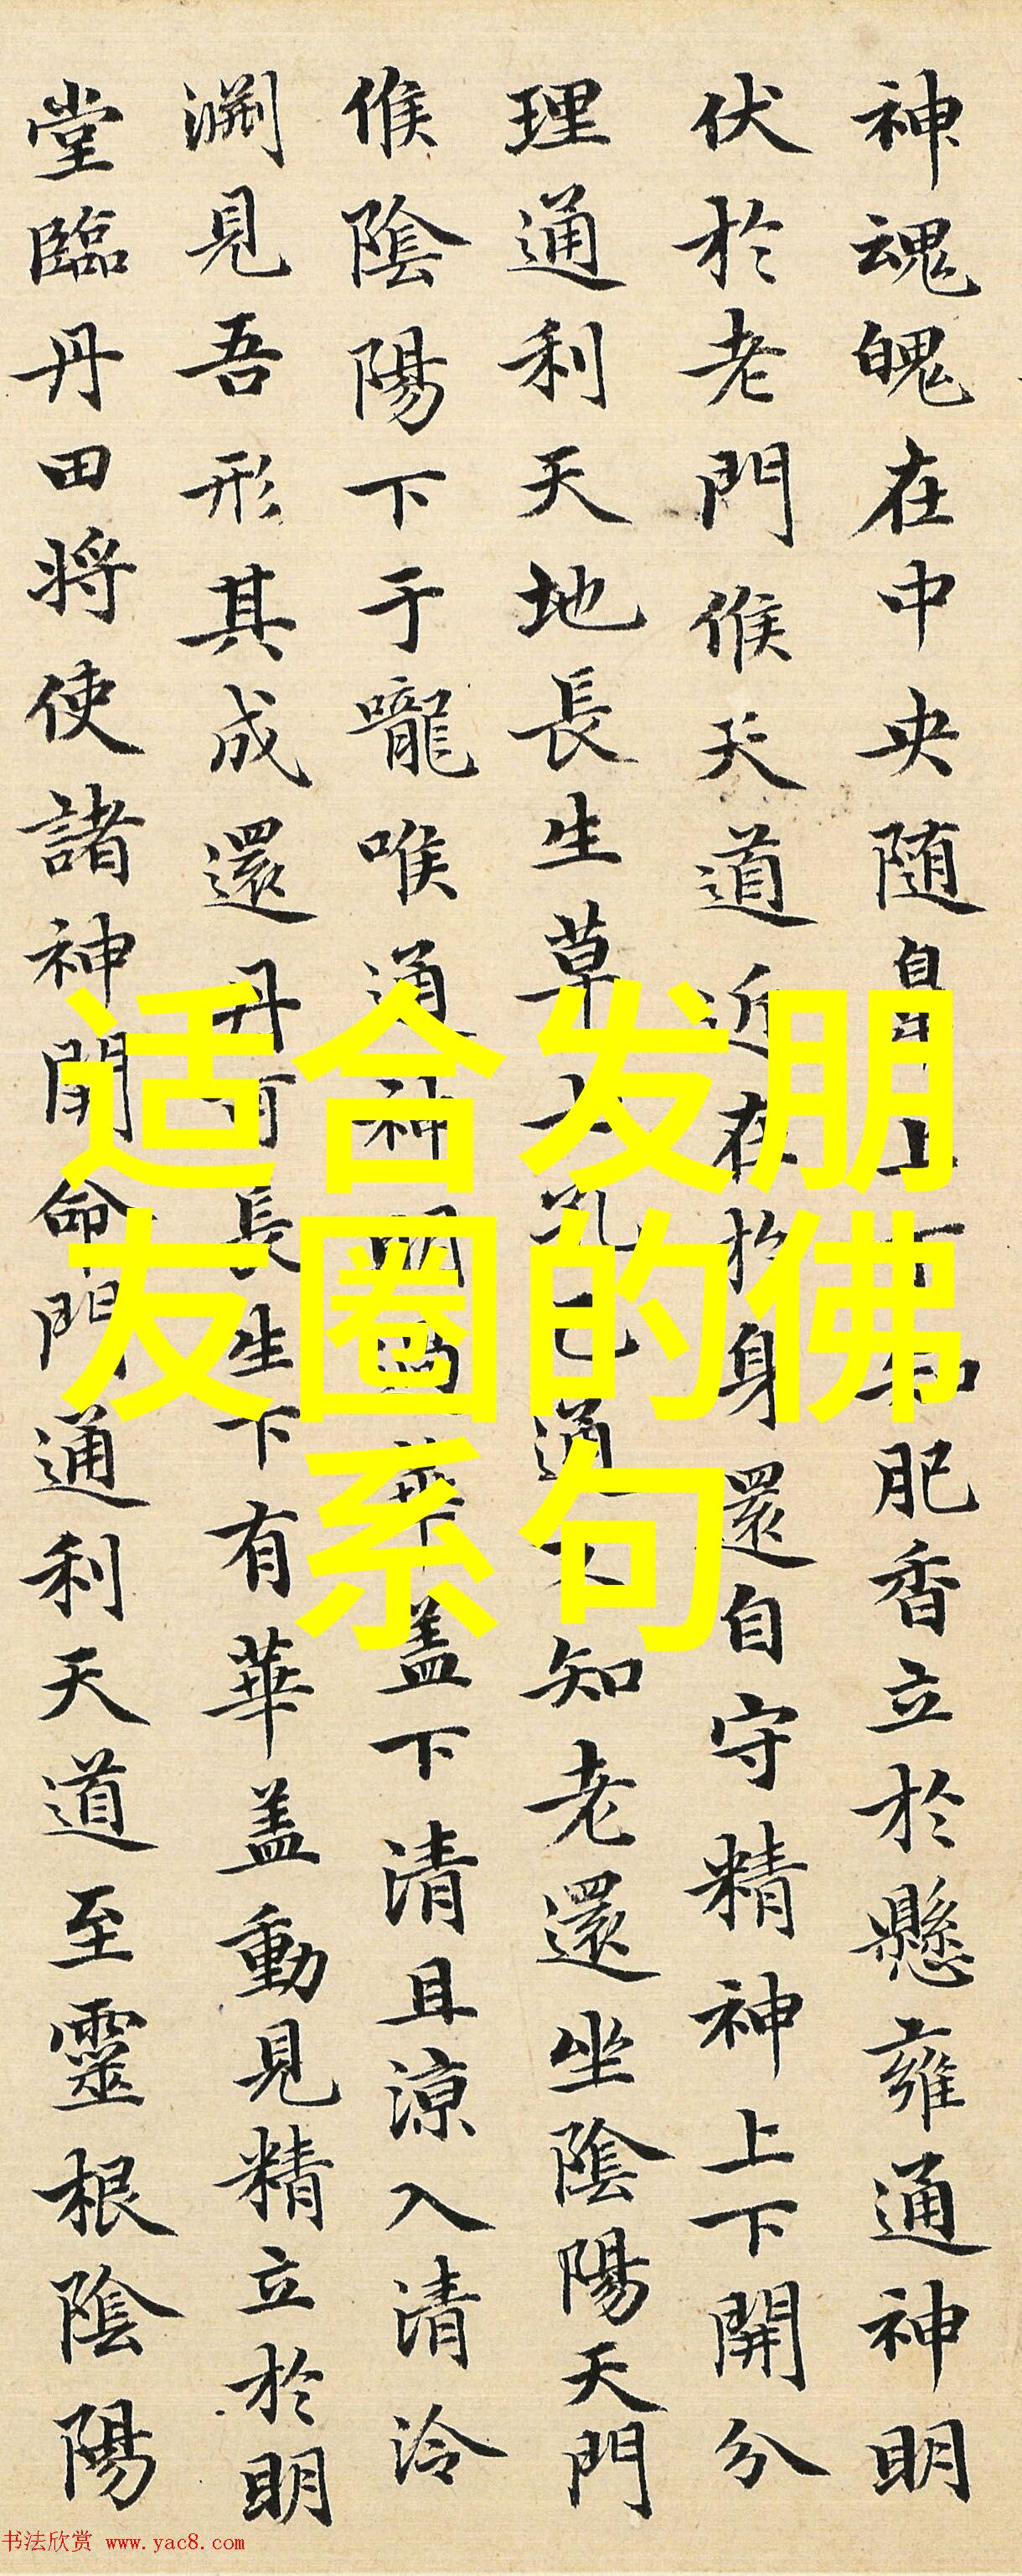 神魂魄在中央随鼻上下知肥香立於懸雍通神明
伏於老門候天道近在於身還自守精神上下開分
理通利天地長生草七孔已通不知老還坐陰陽天門
候陰陽下于嚨喉通神明過華蓋下清且涼入清泠
淵見吾形其成還丹可長生下有華蓋動見精立於明
堂臨丹田将使諸神開命門通利天道至靈根陰陽
适合发朋
友圈的佛
系句
书法欣赏 www.yac8.com